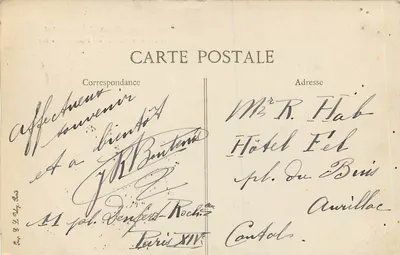 CARTE POSTALE
Correspondance
Affectueux
souvenir
et a bientôt
11 pl. Denfert-Roch
Paris XIV.
Adresse
Mr R. Hab
Hôtel Fel
pl. du Buis
Aurillac
Cantal.